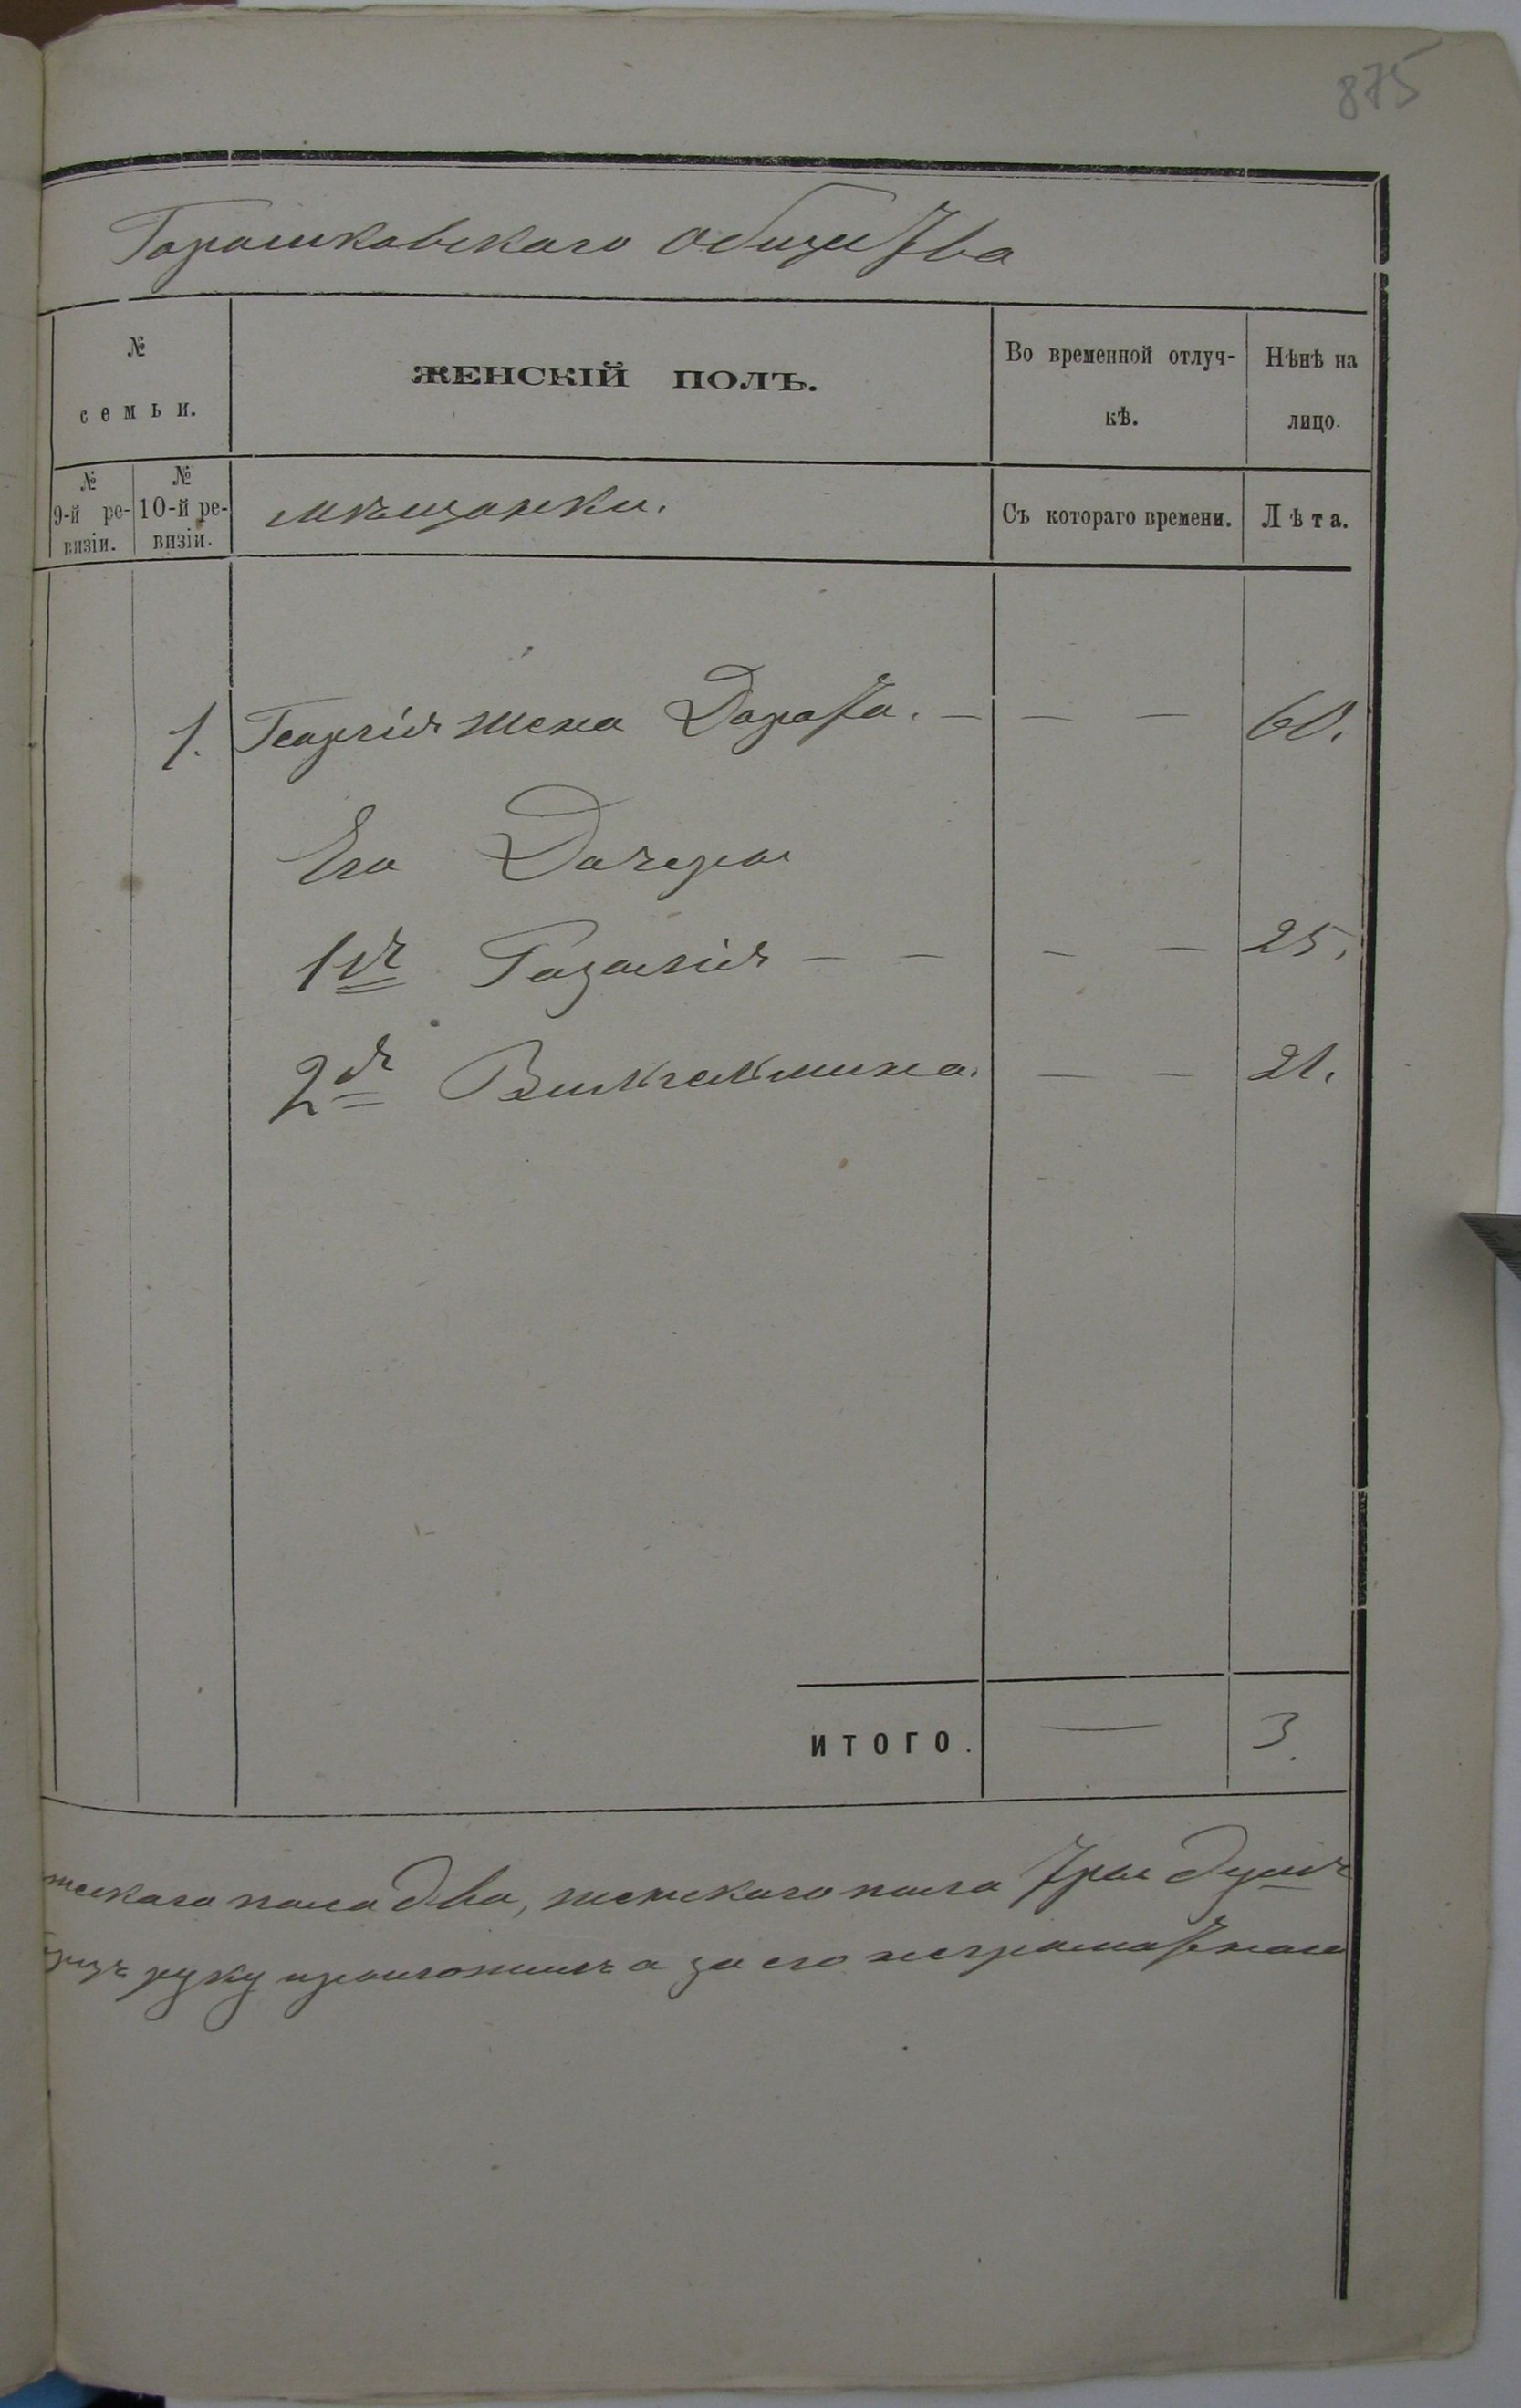 875
Горошковскаго общества
№
семьи.
ЖЕНСКІЙ ПОЛЪ.
Во временной отлуч-
кѣ.
Нѣнѣ на
лицо.
№
9-й ре-
визіи.
№
10-й ре-
визіи.
мѣщанки.
Съ котораго времени.
Лѣта.
1. Георгія жена Дорота. — — — 60.
Его Дочеры
1я Розалія — — — — 25.
2я Вильгельмина. — — 21.
ИТОГО. — 3.
жскаго пола два, женскаго пола три душъ
руку приложилъ а за его неграмотнаго